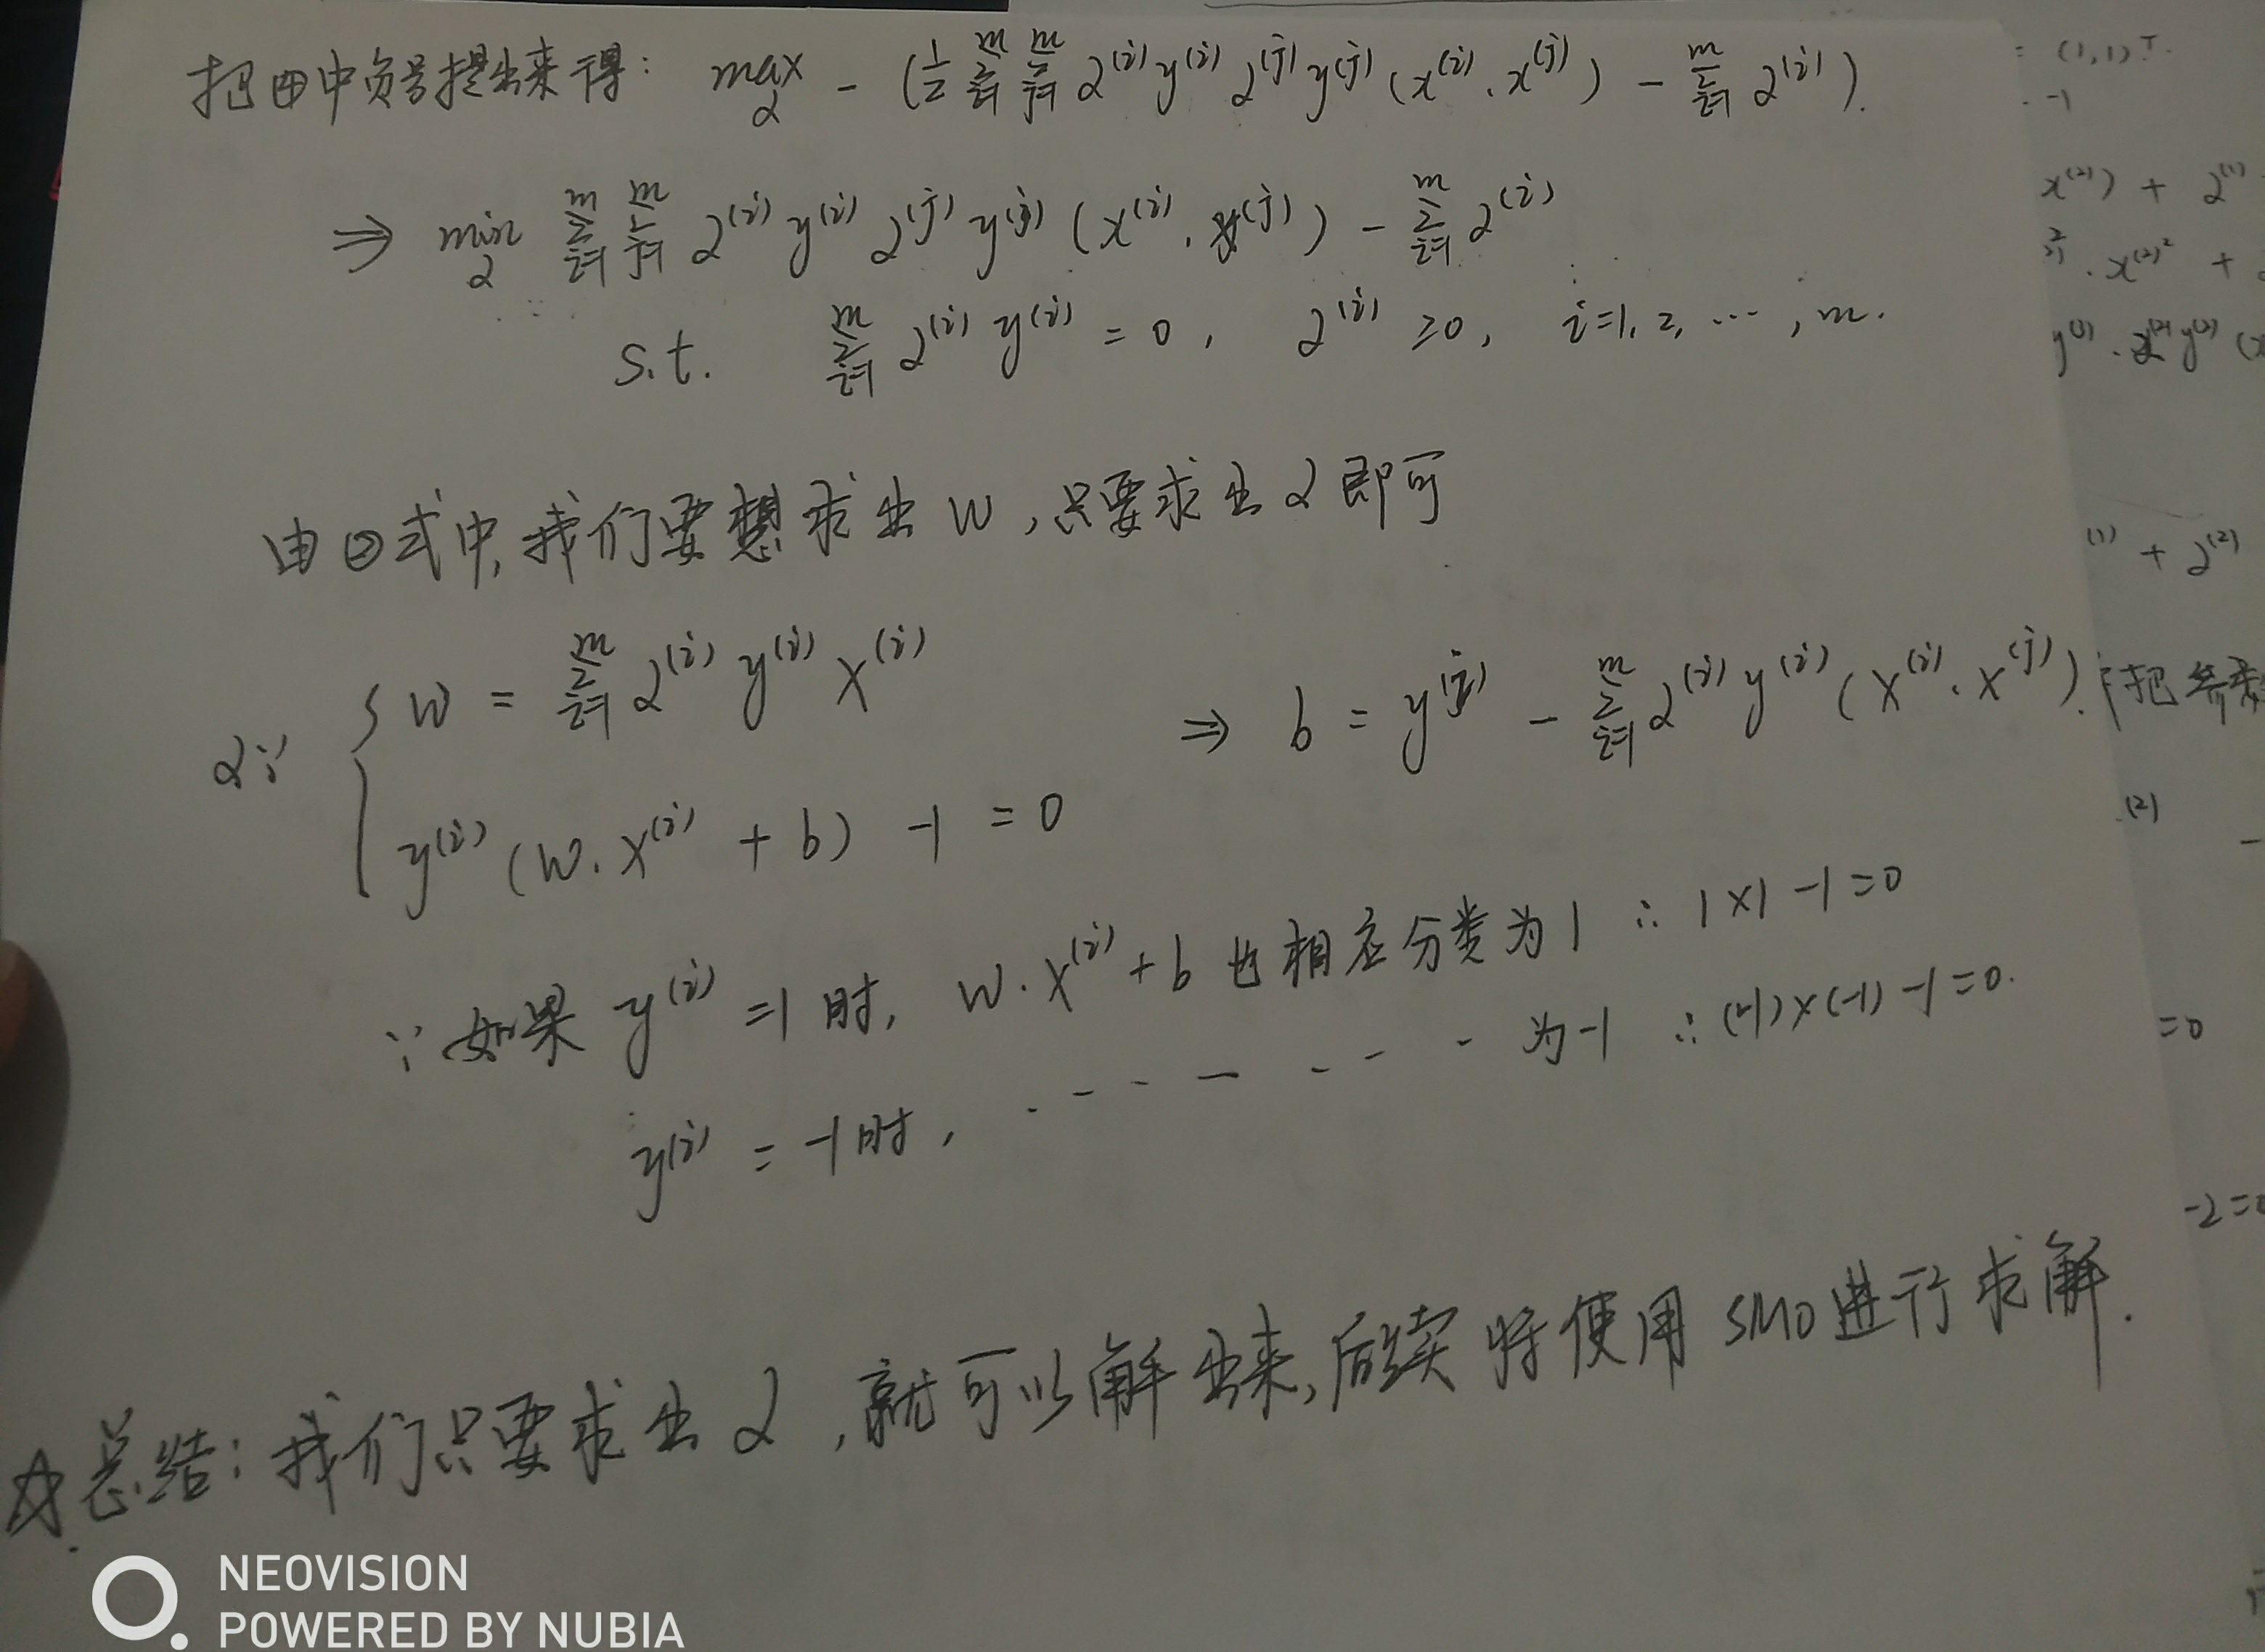 把④中负号提出来得: max_α - (1/2 Σ_{i=1}^m Σ_{j=1}^m α^(i) y^(i) α^(j) y^(j) (x^(i) · x^(j)) - Σ_{i=1}^m α^(i)).
⇒ min_α Σ_{i=1}^m Σ_{j=1}^m α^(i) y^(i) α^(j) y^(j) (x^(i) · x^(j)) - Σ_{i=1}^m α^(i)
s.t. Σ_{i=1}^m α^(i) y^(i) = 0, α^(i) ≥0, i=1, 2, ⋯, m.
由②式中,我们要想求出 W,只要求出 α 即可
α∵ { W = Σ_{i=1}^m α^(i) y^(i) X^(i)
y^(i) (W · X^(i) + b) -1 = 0
⇒ b = y^(j) - Σ_{i=1}^m α^(i) y^(i) (X^(i) · X^(j)).
∵ 如果 y^(i) =1 时, W · X^(i) + b 也相应分类为 1 ∴ 1×1 -1 =0
y^(i) = -1时, - - - - - - 为 -1 ∴ (-1)×(-1) -1 =0.
☆总结: 我们只要求出 α ,就可以解出来,后续将使用 SMO 进行求解.
= (1,1)^T.
-1
x^(2)) + α^(1)
· x^(2)² +
^(1) + α^(2)
把
(2) -
=0
-2=0
NEOVISION
POWERED BY NUBIA